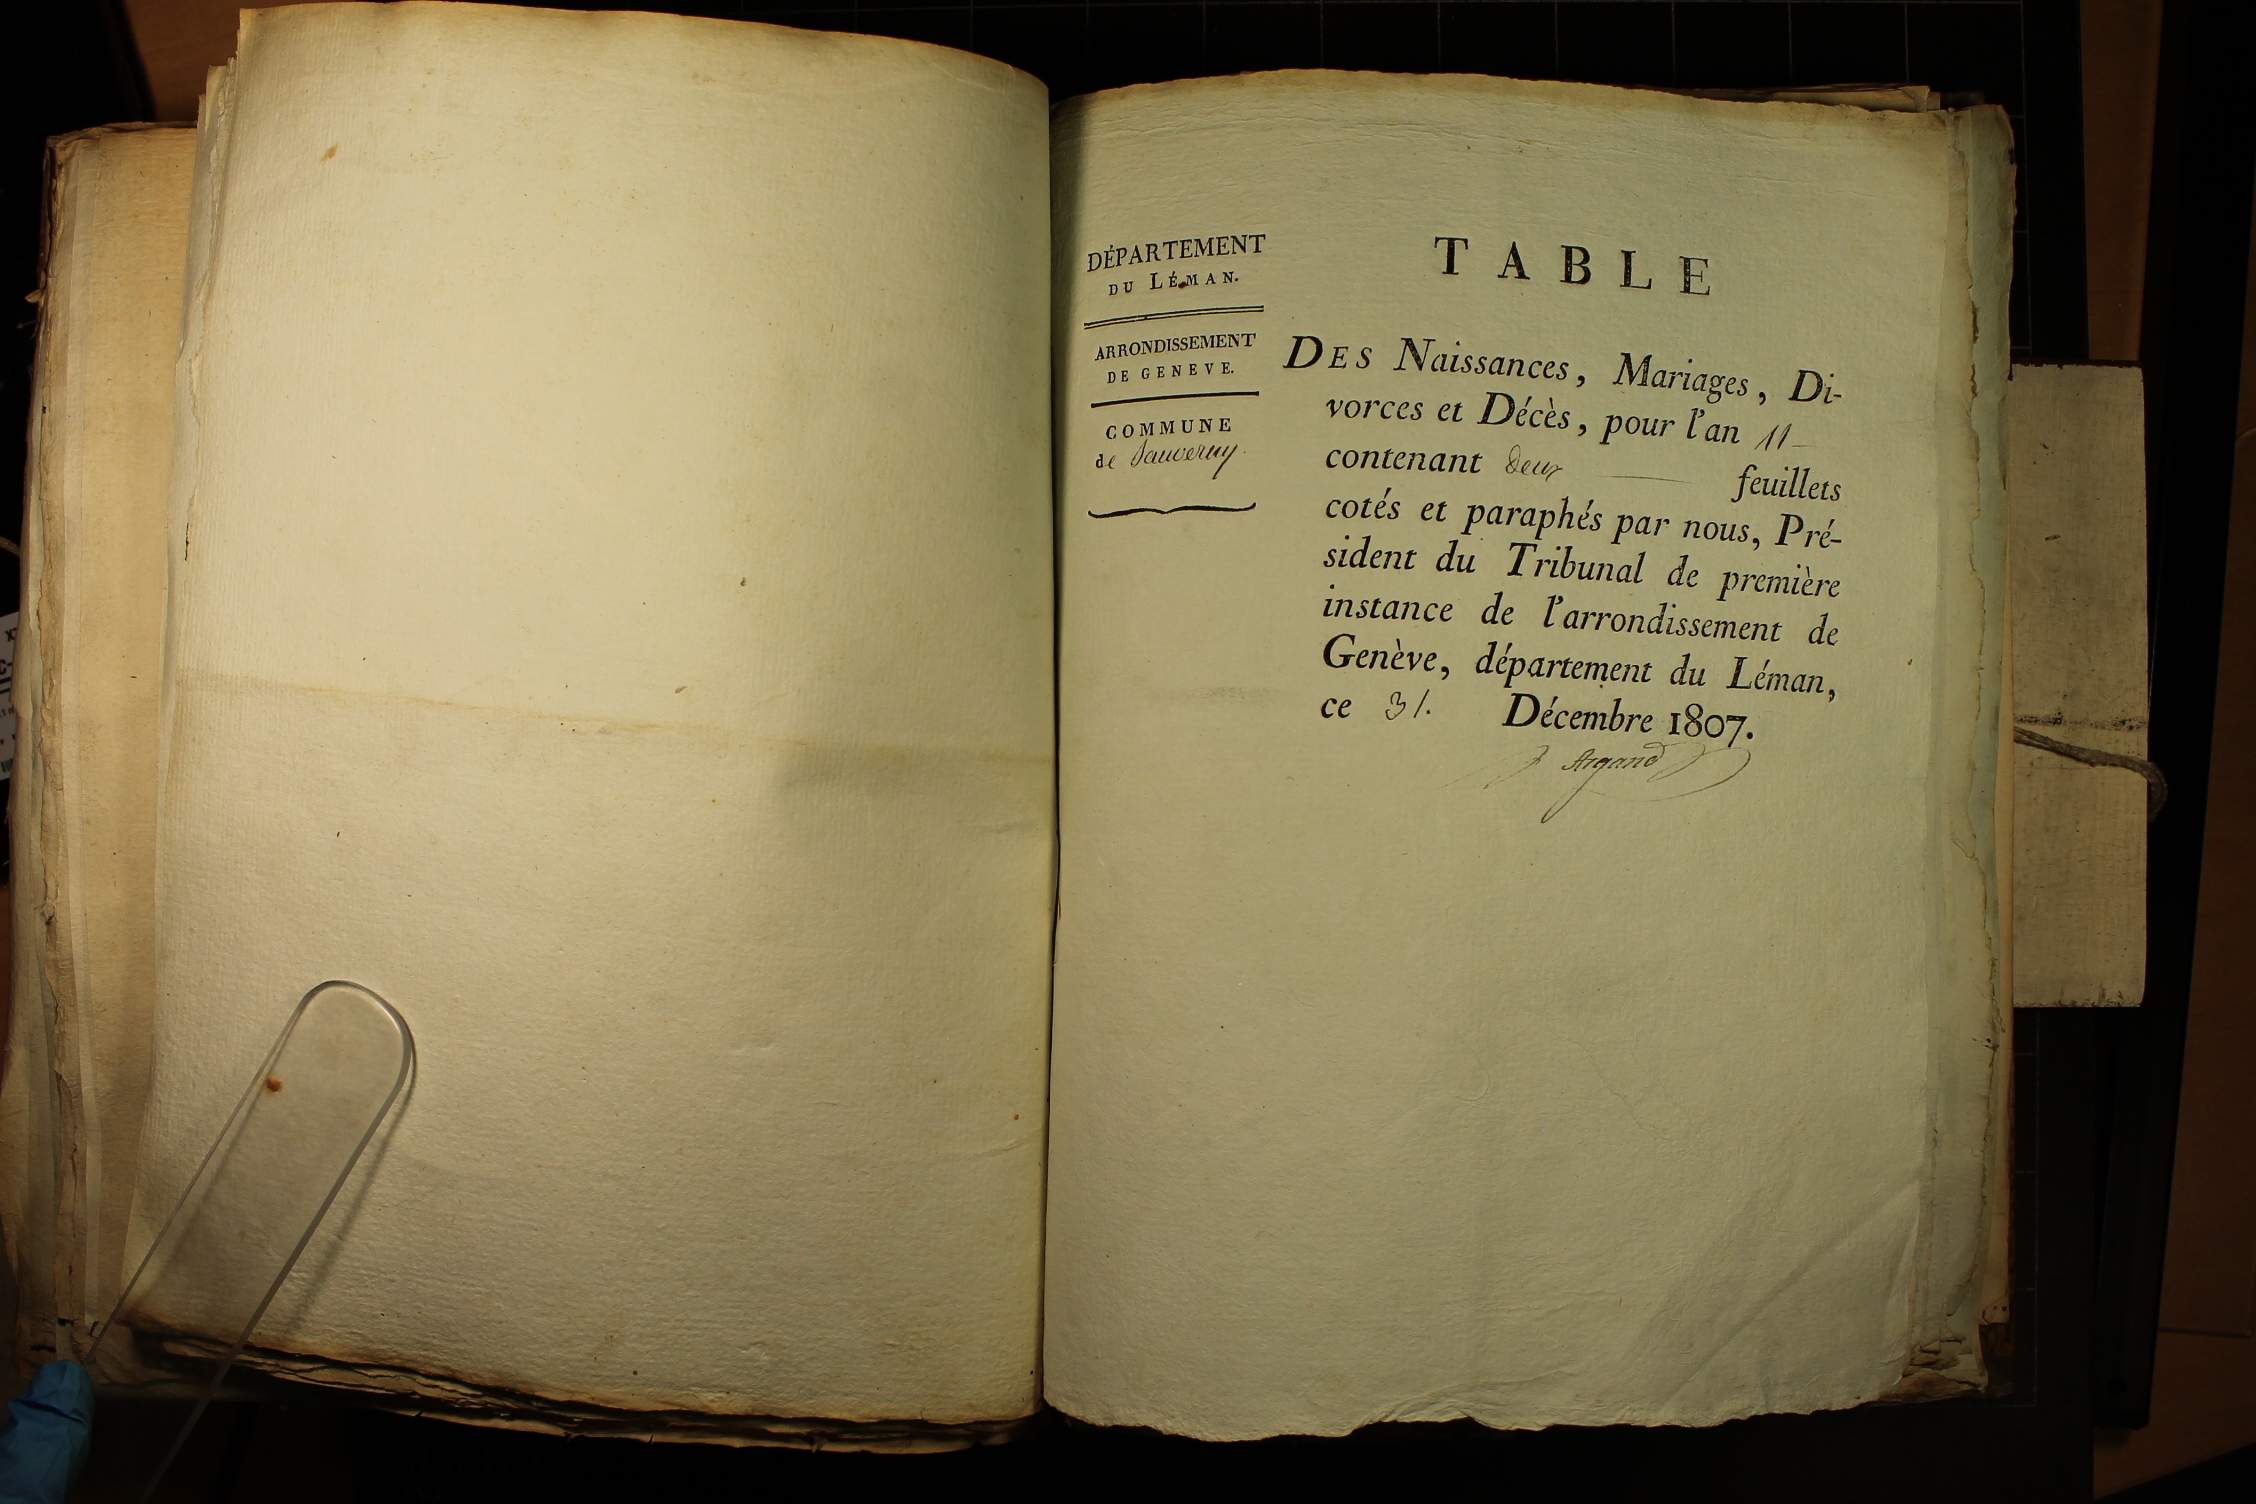 DÉPARTEMENT
DU LÉMAN.
ARRONDISSEMENT
DE GENEVE.
COMMUNE
de Sauverny
TABLE
DES Naissances, Mariages, Di-
vorces et Décès, pour l'an 11
contenant deux feuillets
cotés et paraphés par nous, Pré-
sident du Tribunal de première
instance de l'arrondissement de
Genève, département du Léman,
ce 31. Décembre 1807.
Argand